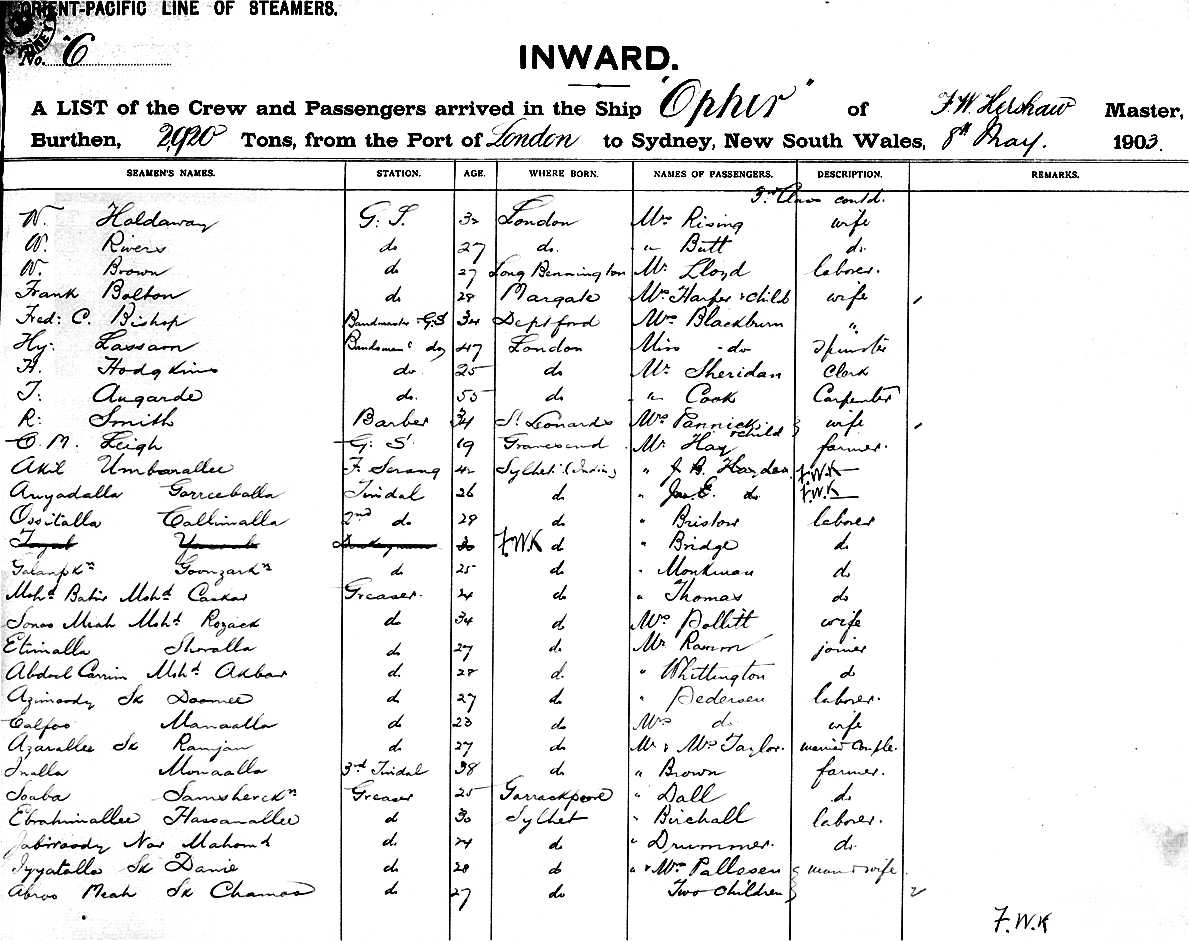 ORIENT-PACIFIC LINE OF STEAMERS.
No. "C"
INWARD.
A LIST of the Crew and Passengers arrived in the Ship "Ophir" of F. W. Kershaw Master,
Burthen, 2920 Tons, from the Port of London to Sydney, New South Wales, 8th May. 1903.
SEAMEN'S NAMES. STATION. AGE. WHERE BORN. NAMES OF PASSENGERS. DESCRIPTION. REMARKS.
3rd Class contd.
W. Holdaway G. S. 32 London Mrs Rising wife
W. Rivers do 27 do. " Butt do
W. Brown do 27 Long Bennington Mr Lloyd laborer.
Frank Bolton do 28 Margate Mrs Harper & child wife
Fred: C. Bishop Bandmaster & G.S 34 Deptford Mrs Blackburn "
Hy: Lassam Bandsman & do 47 London Miss do Spinster
H. Hodgkins do 25 do Mr Sheridan Clerk
T: Augarde do. 55 do " Cook Carpenter
R: Smith Barber 34 St Leonards Mrs Pannick & child } wife
C. M. Leigh G. S. 19 Gravesend Mr Hay farmer.
Akil Umbarallee F. Serang 42 Sylhet (India) " J. B. Hayden F.W.K
Amyadalla Tindal 26 do " do F.W.K
Ossitalla 2nd do 28 do " Bristow laborer
F.W.K do " Bridge do
do 25 do " Monkman do
Mohd Babir Mohd Caskar Greaser. 24 do " Thomas do
Sonoo Meah Mohd Rozack do 34 do Mrs Pollitt wife
Etimalla Shoralla do 27 do Mr Ramm joiner
Abdool Carrim Mohd Akbar do 28 do " Whittington do
Azimoody Sk Doomee do 27 do " Pedersen laborer.
Calfoo Manaalla do 23 do Mrs do wife
Azarallee Sk Ramjan do 27 do Mr & Mrs Taylor. married couple.
Inalla Monaalla 3rd Tindal 38 do " Brown farmer.
Soaba Greaser 25 Gorrackpore " Dall do
Ebrahimallee Hassanallee d 30 Sylhet " Birchall laborer.
Jabiroody Nor Mahomd d. 24 do " Drummer. do.
Iyyatalla Sk Danie d 28 do " & Mrs Pallesen } man & wife
Abroo Meah Sk Chamoo do 27 do Two children }
F.W.K